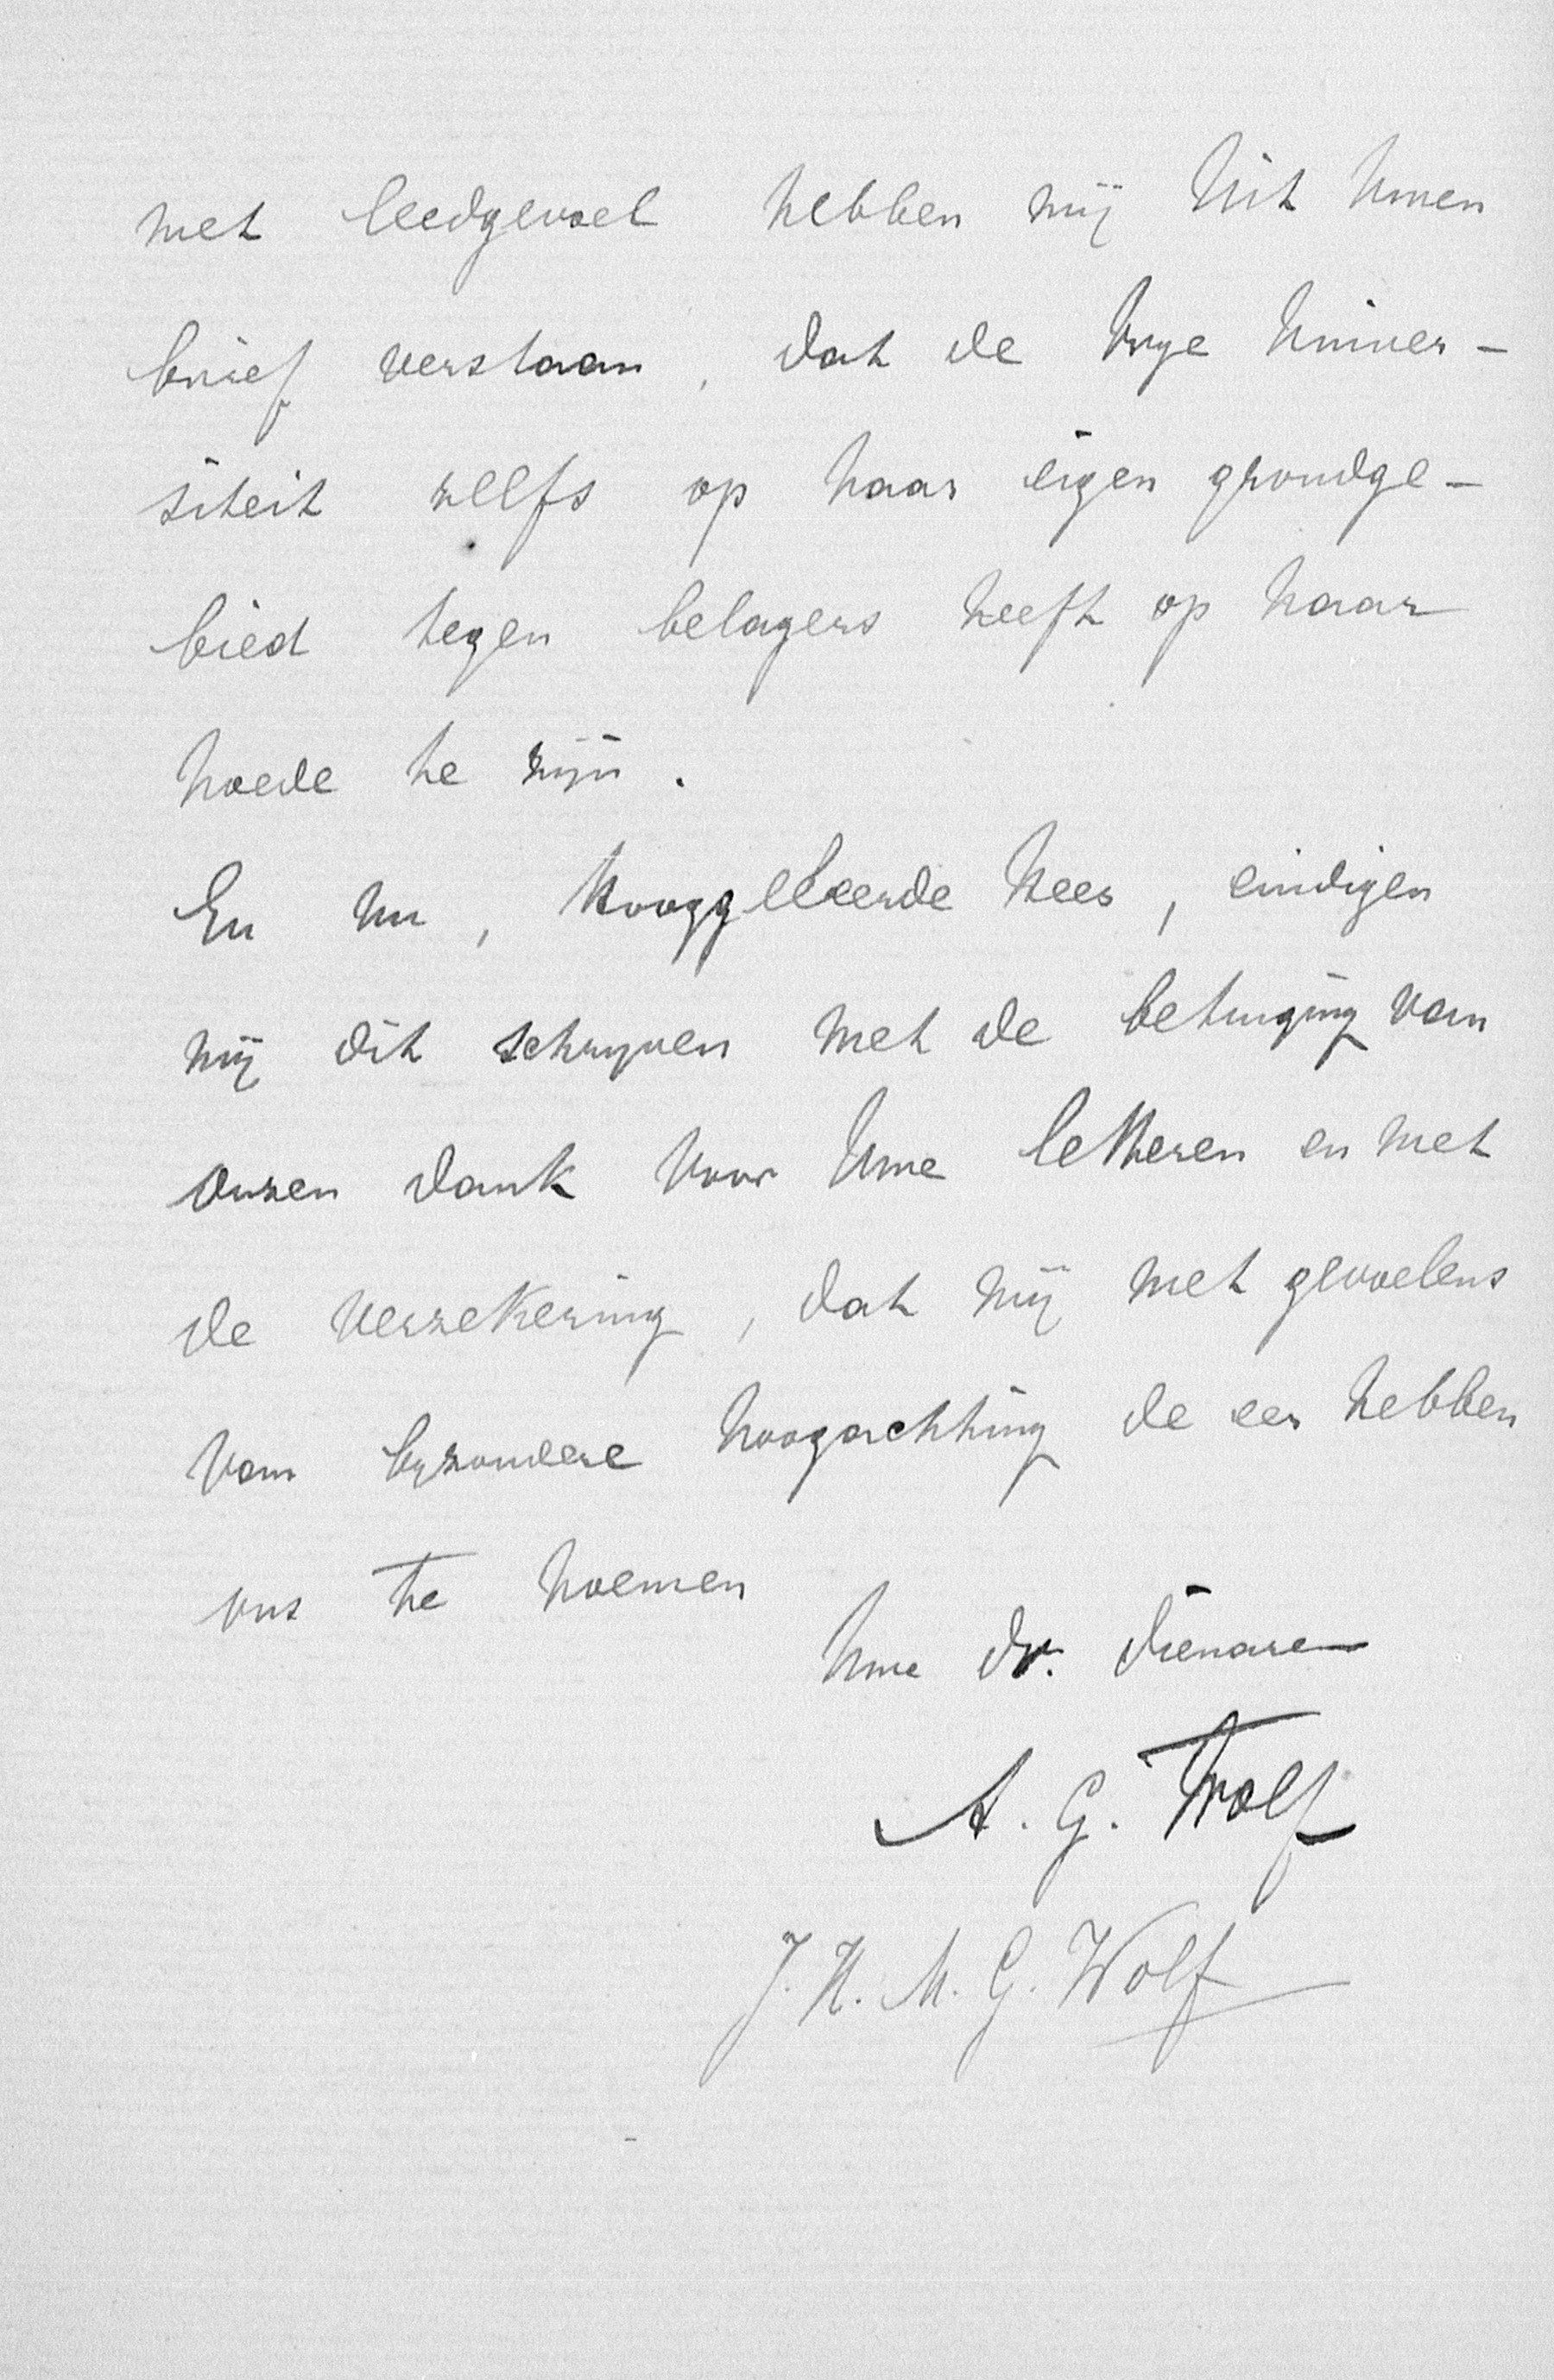 met leedgevoel hebben wij uit Uwen
brief verstaan, dat de Vrye Univer-
siteit zelfs op haar eigen grondge-
bied tegen belagers heeft op haar
hoede te zijn.
En nu, Hooggeleerde Heer, eindigen
wij dit schryven met de betuiging van
onzen dank voor Uwe letteren en met
de verzekering, dat wij met gevoelens
van byzondere hoogachting de eer hebben
ons te noemen
Uwe dv. dienaren
A. G. Wolf
J. H. M. G. Wolf